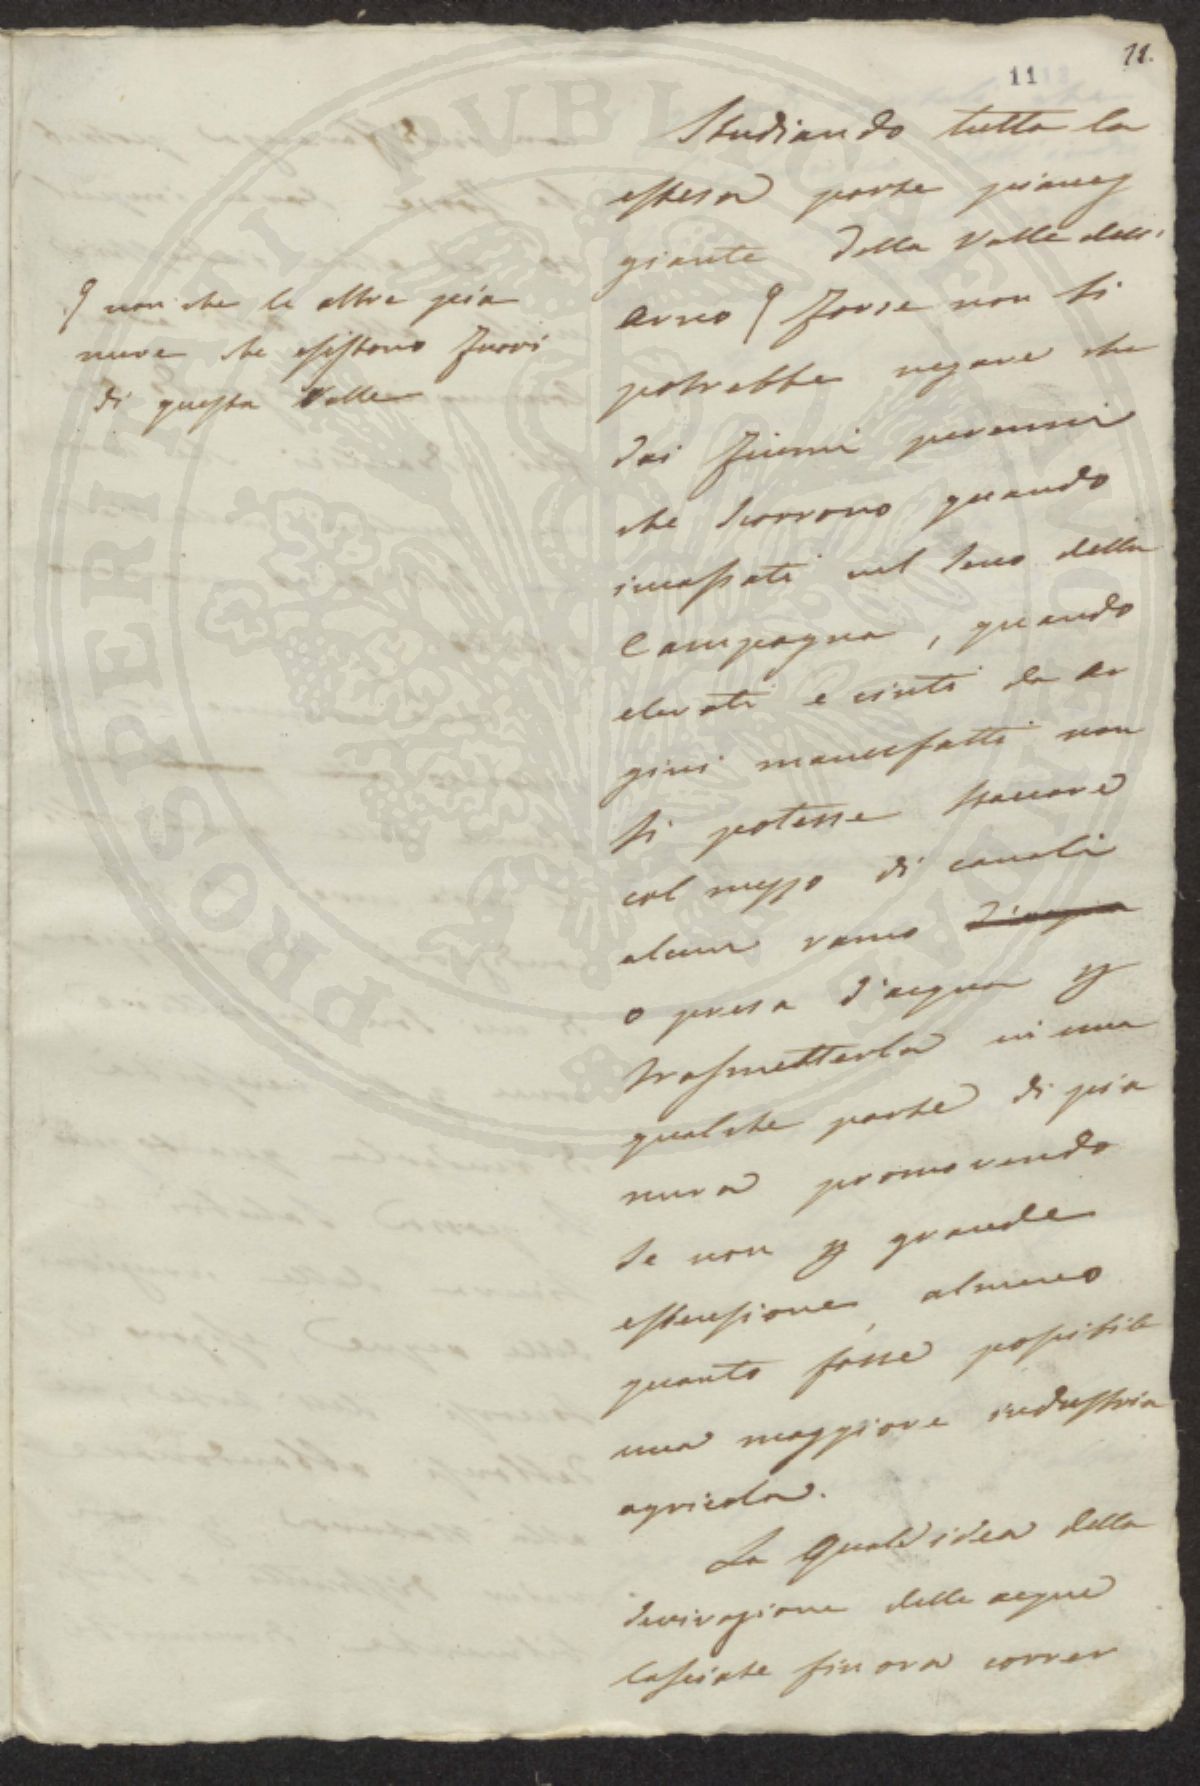 11.
11
Studiando tutta la
estesa parte pianeg
giante della Valle dell'
Arno φ forse non si
potrebbe negare che
dai fiumi perenni
che scorrono quando
incassati nel seno della
Campagna, quando
elevati e cinti da ar
gini manufatti non
si potesse staccare
col mezzo di canali
alcun ramo d'acqua
o presa d'acqua p
trasmetterla in una
qualche parte di pia
nura promovendo
se non p grande
estensione almeno
quanto fosse possibile
una maggiore industria
agricola.
La quale idea della
derivazione delle acque
lasciate fin ora correr
φ non che le altre pia
nure che esistono fuori
di questa Valle
PROSPERITATI PVBLICAE